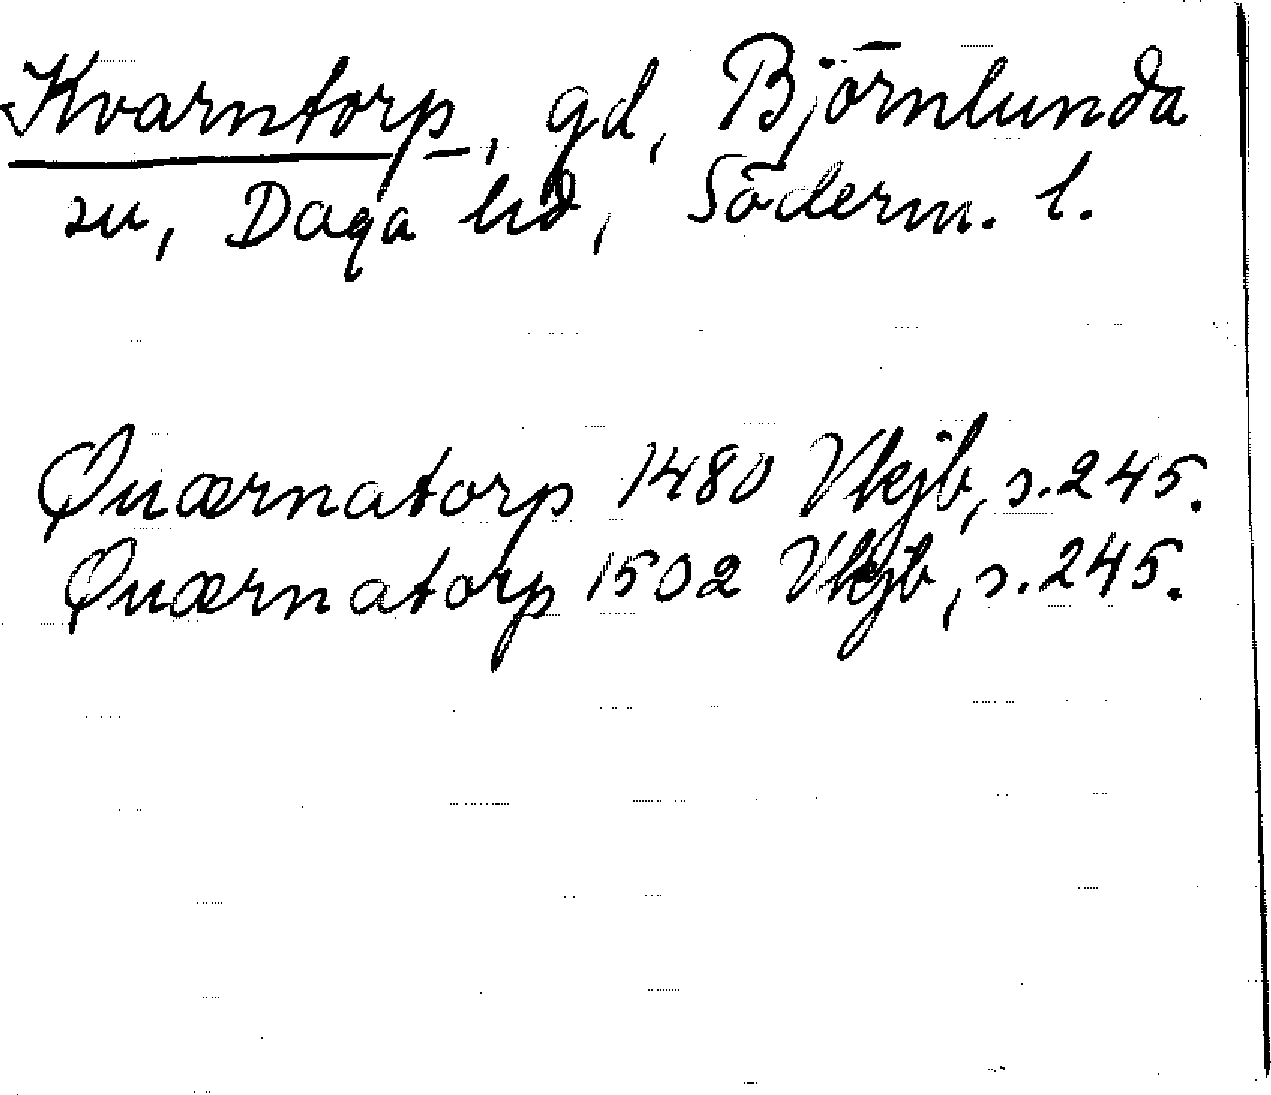 Kvarntorp, gd, Björnlunda
sn, Daga hd, Söderm. l.
Quærnatorp 1480 Vkjb, s. 245.
Quærnatorp 1502 Vkjb, s. 245.